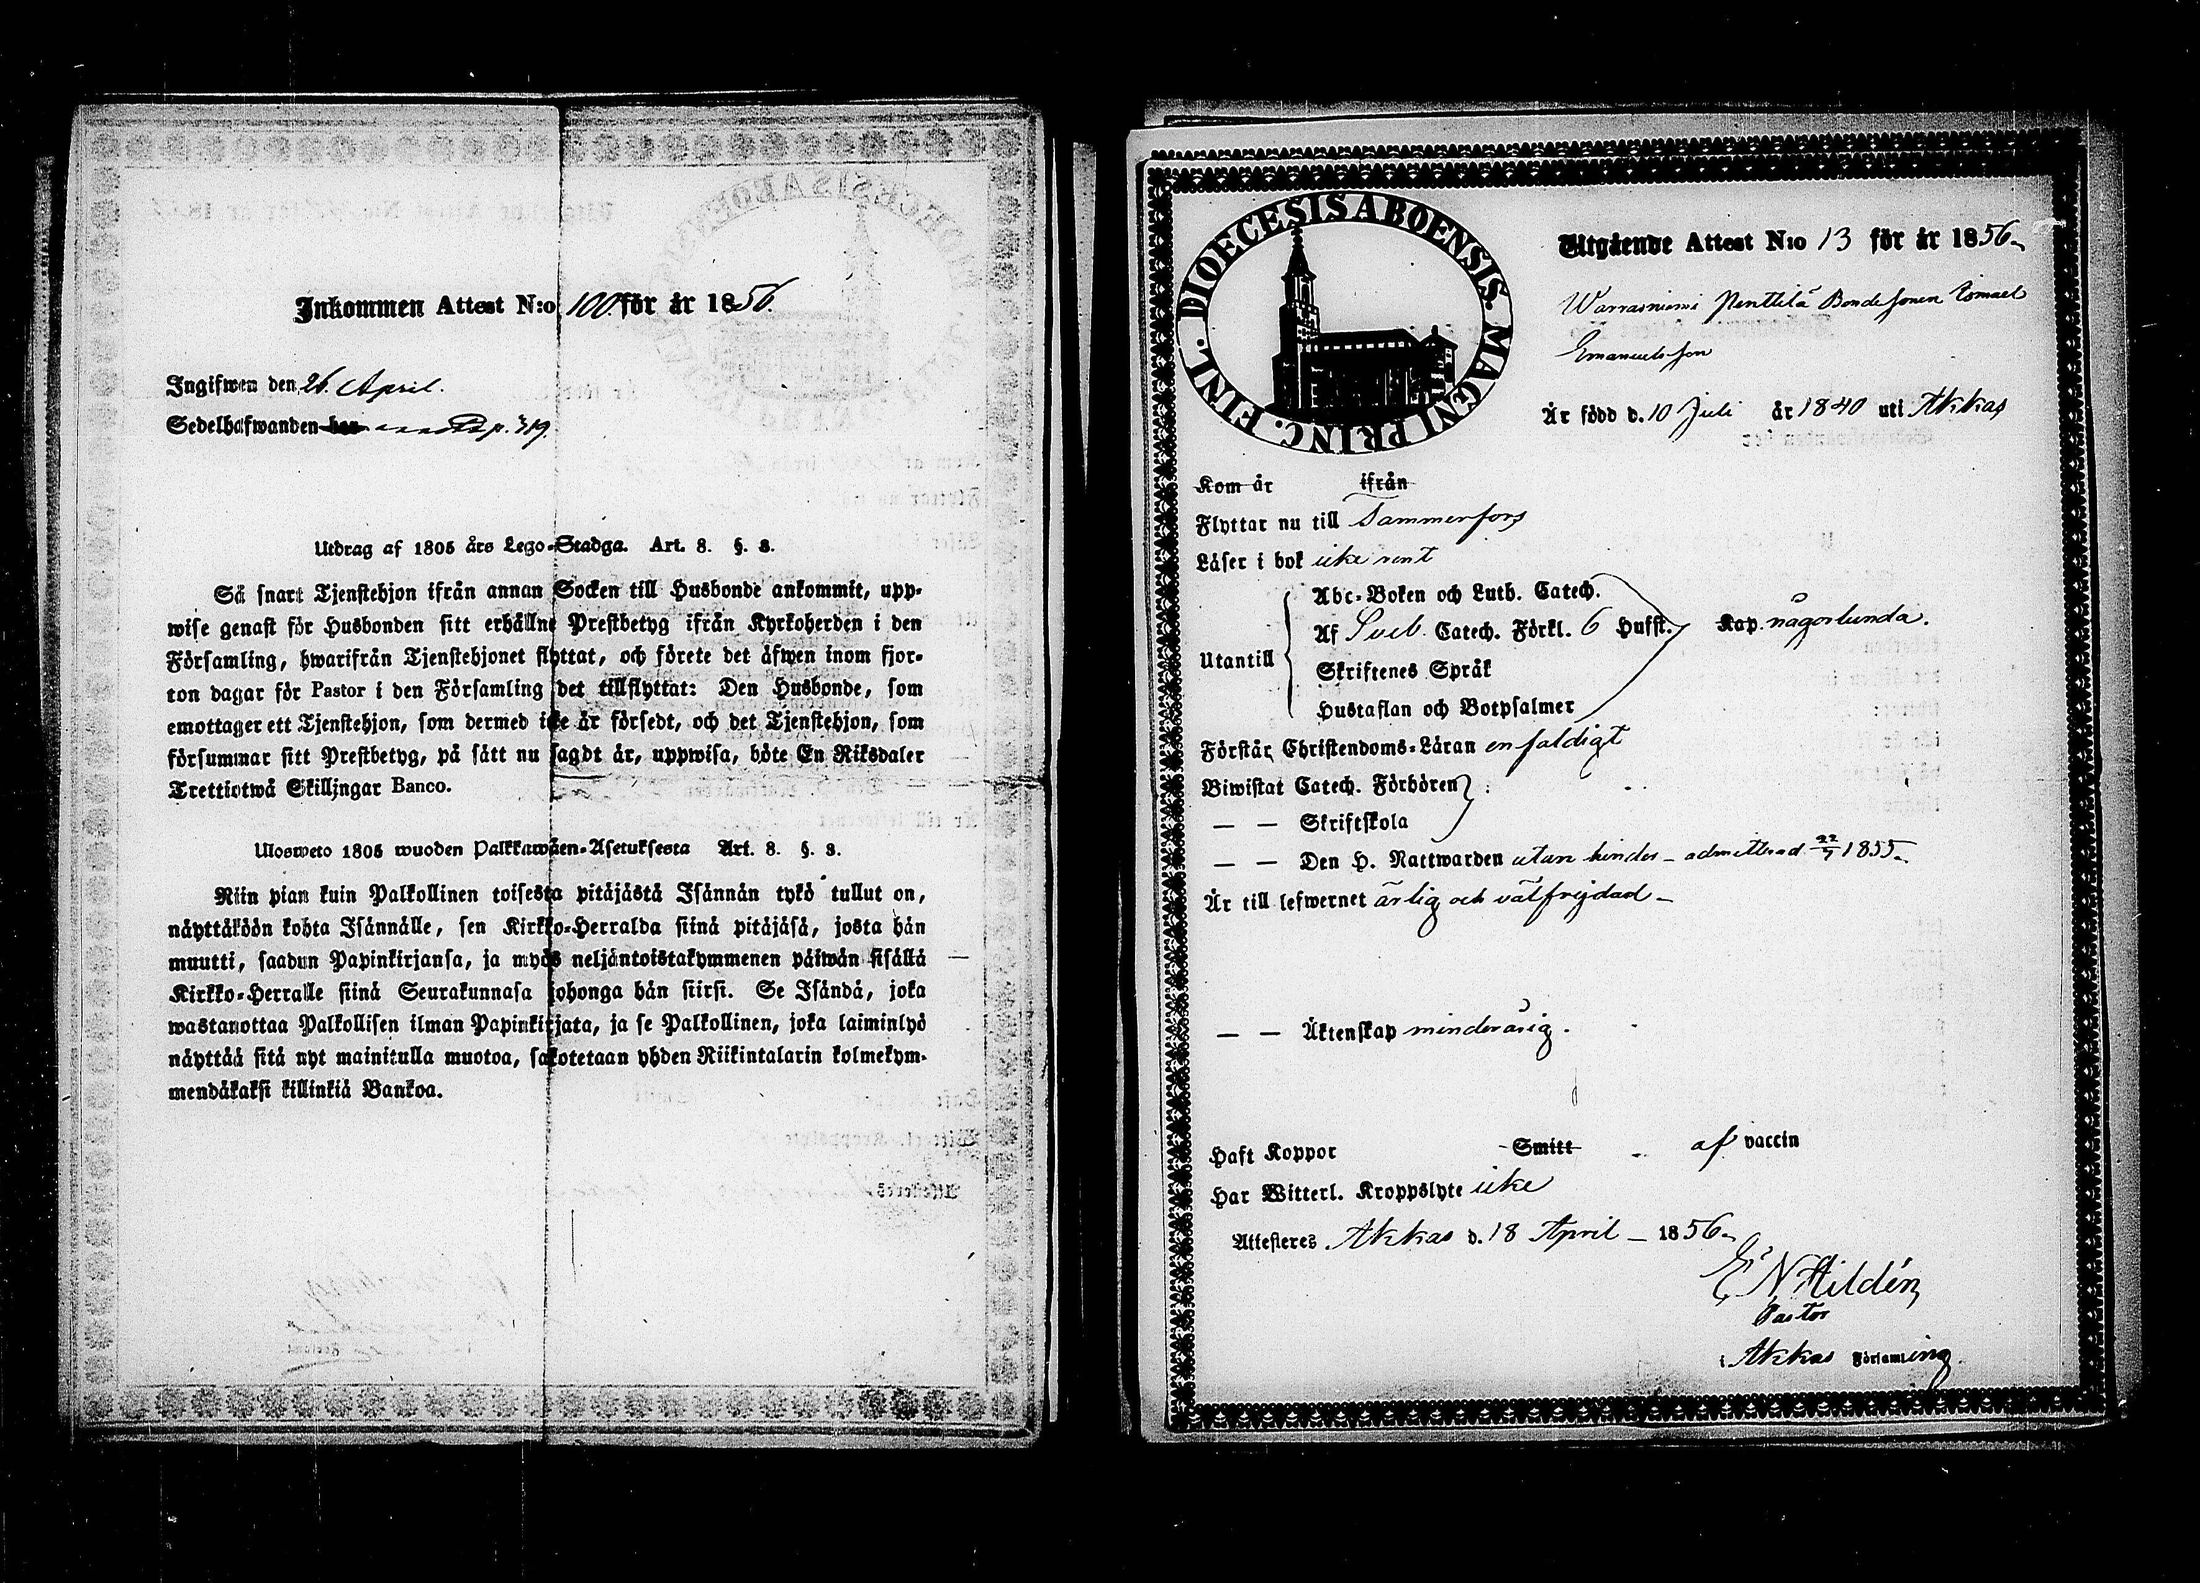 Inkommen Attest N:o 100 för år 1856.
Ingifwen den 26 April.
Sedelhafwanden har p. 319.
Utdrag af 1805 års Lego-Stadga. Art. 8. §. 3.
Så snart Tjenstehjon ifrån annan Socken till Husbonde ankommit, upp-
wise genast för Husbonden sitt erhållne Prestbetyg ifrån Kyrkoherden i den
Församling, hwarifrån Tjenstehjonet flyttat, och förete det äfwen inom fjor-
ton dagar för Pastor i den Församling det tillflyttat: Den Husbonde, som
emottager ett Tjenstehjon, som dermed icke är försedt, och det Tjenstehjon, som
försummar sitt Prestbetyg, på sätt nu sagdt är, uppwisa, böte En Riksdaler
Trettiotwå Skillingar Banco.
Ulosweto 1805 wuoden Palkkawäen-Asetuksesta Art. 8. §. 3.
Niin pian kuin Palkollinen toisesta pitäjästä Isännän tykö tullut on,
näyttäköön kohta Isännälle, sen Kirkko-Herralda siinä pitäjäsä, josta hän
muutti, saadun Papinkirjansa, ja myös neljäntoistakymmenen päiwän sisällä
Kirkko-Herralle siinä Seurakunnasa johonga hän siirsi. Se Isändä, joka
wastanottaa Palkollisen ilman Papinkirjata, ja se Palkollinen, joka laiminlyö
näyttää sitä nyt mainitulla muotoa, sakotetaan yhden Riikintalarin kolmekym-
mendäkaksi killinkiä Bankoa.
DIOECESIS ABOENSIS. MAGNI PRINC. FINL.
Utgående Attest N:o 13 för år 1856
Warrasniemi Penttilä Bondesonen Ismael
Emanuelsson
Är född d. 10 Juli år 1840 uti Akkas
Kom år ifrån
Flyttar nu till Tammerfors
Läser i bok icke rent
Abc-Boken och Luth. Catech.
Af Sveb. Catech. Förkl. 6 Hufst. Kap. någorlunda.
Utantill
Skriftenes Språk
Hustaflan och Botpsalmer
Förstår Christendoms-Läran enfaldigt
Biwistat Catech. Förhören
— — Skriftskola
— — Den H. Nattwarden utan hinder – admitterad 22/7 1855
Är till lefwernet ärlig och välfrejdad –
— — Äktenskap minderårig.
Haft Koppor Smitt af vaccin
Har Witterl. Kroppslyte icke
Attesteres Akkas d. 18 April – 1856
E N Hildén
Pastor
i Akkas Församling.